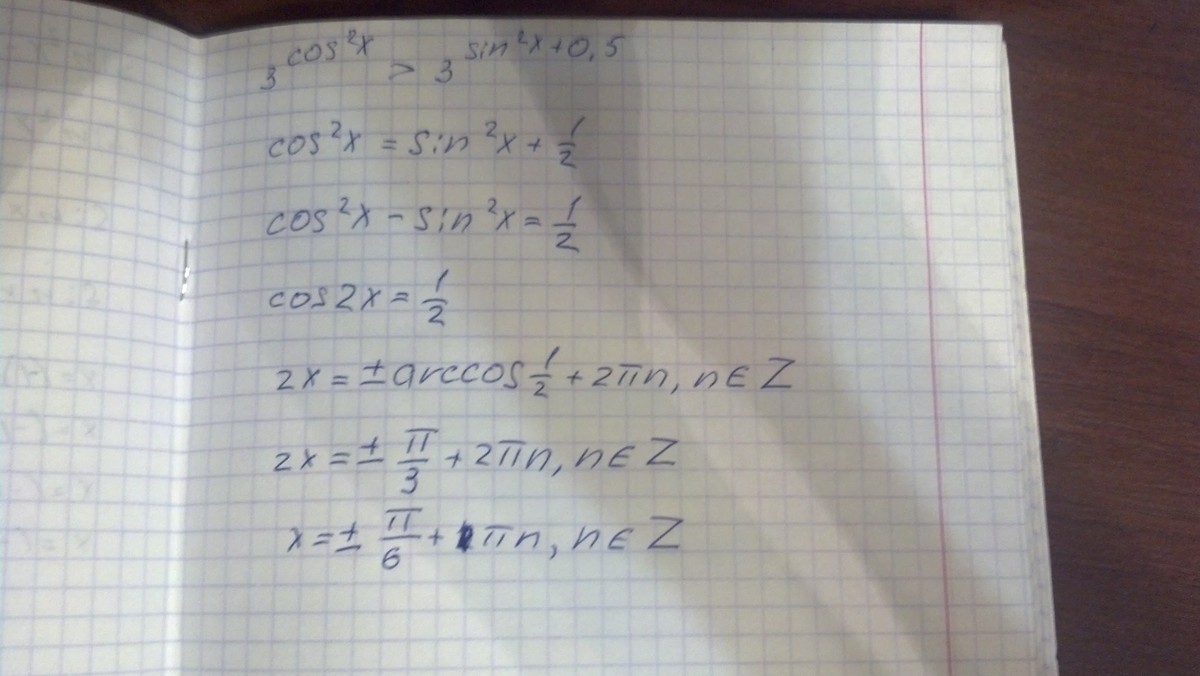 3^cos²x > 3^sin²x+0,5
cos²x = sin²x + 1/2
cos²x - sin²x = 1/2
cos2x = 1/2
2x = ± arccos 1/2 + 2πn, n ∈ Z
2x = ± π/3 + 2πn, n ∈ Z
x = ± π/6 + πn, n ∈ Z